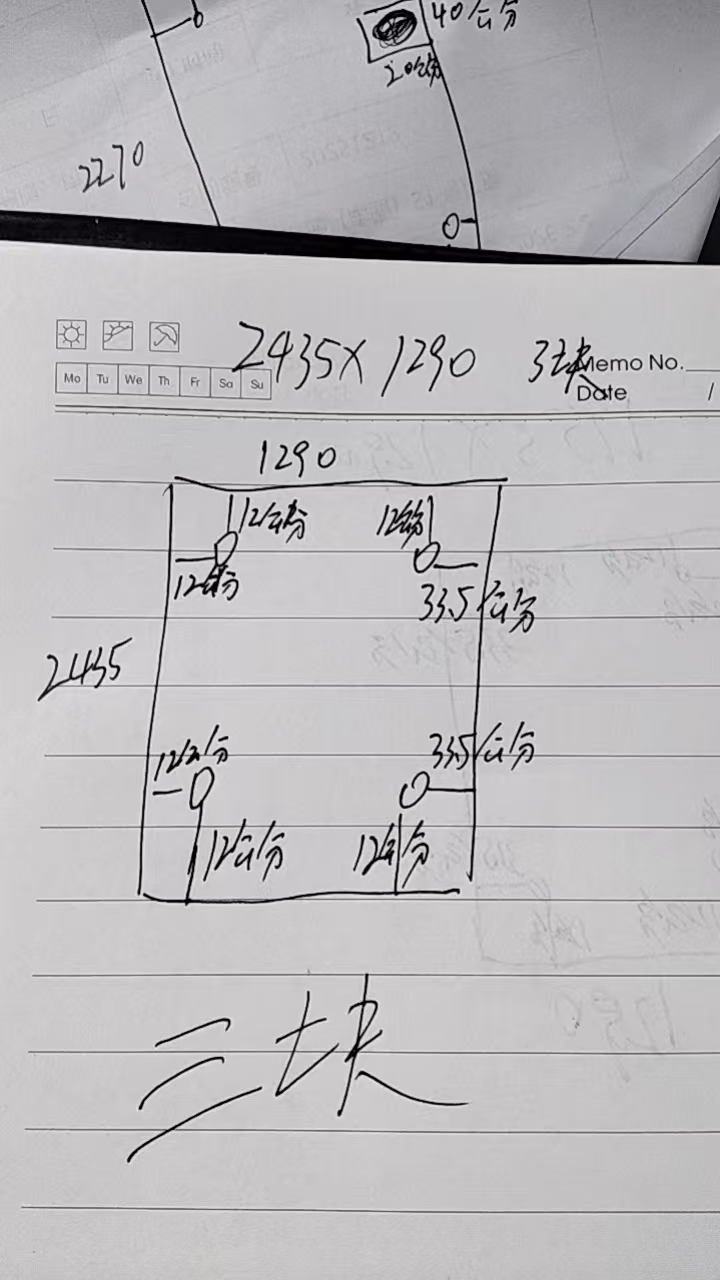 40公分
20公分
2270
2435×1290 3块
Memo No.
Mo Tu We Th Fr Sa Su
Date /
1290
12公分 12公分
12公分 33.5公分
2435
12公分 33.5公分
12公分 12公分
三块